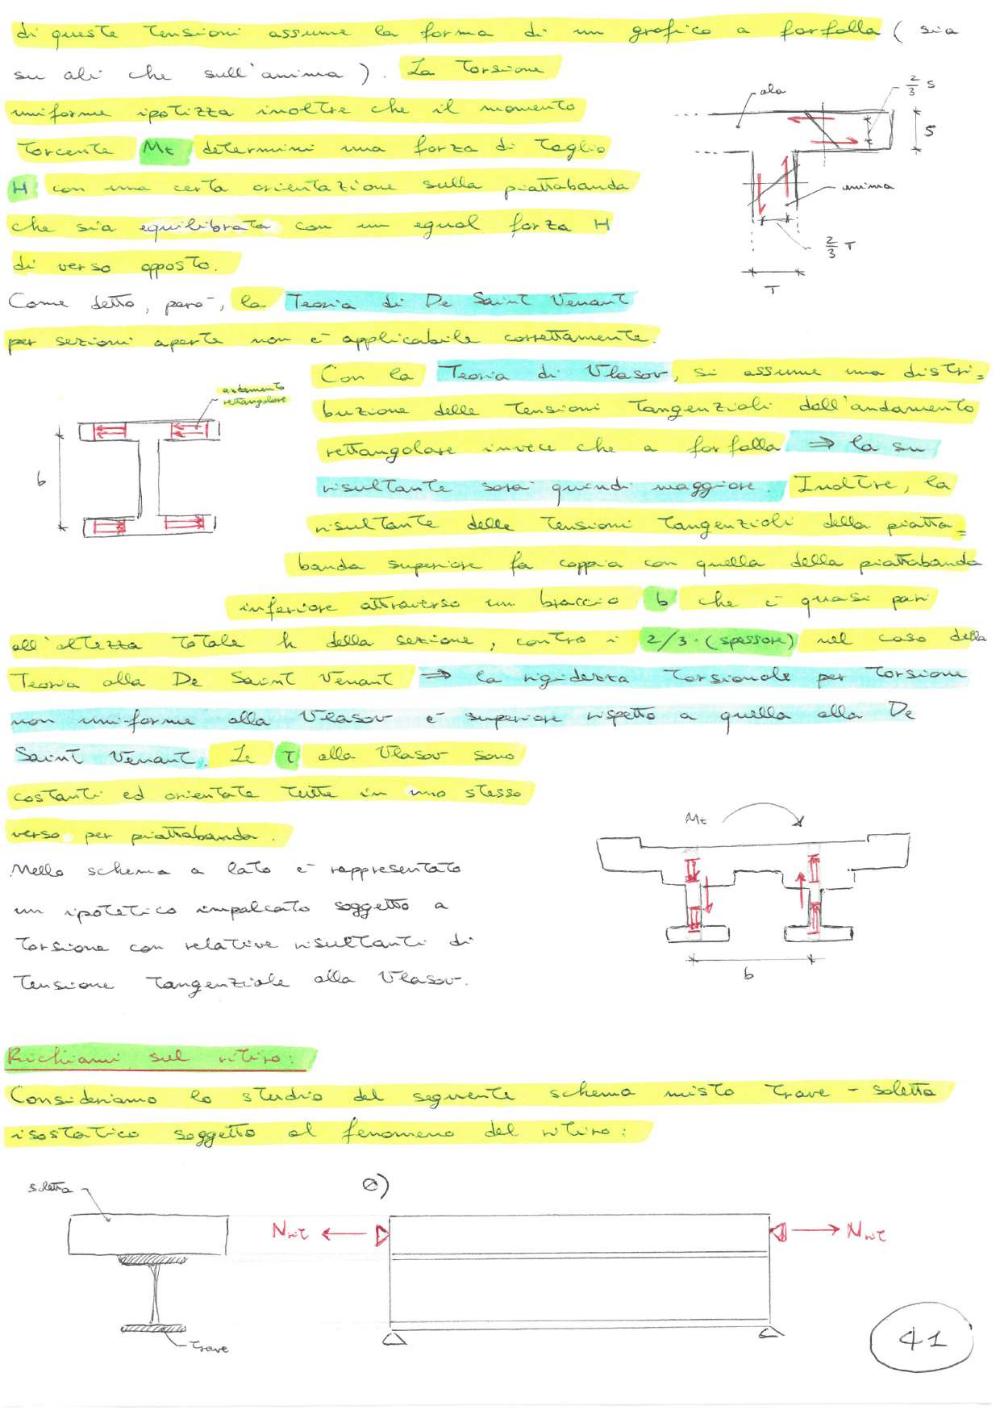 di queste tensioni assume la forma di un grafico a farfalla ( sia
su ali che sull'anima ). La torsione
uniforme ipotizza inoltre che il momento
torcente Mt determini una forza di taglio
H con una certa orientazione sulla piattabanda
che sia equilibrata con un egual forza H
di verso opposto.
ala
2/3 S
S
anima
2/3 T
T
Come detto, però, la Teoria di De Saint Venant
per sezioni aperte non è applicabile correttamente.
andamento
rettangolare
b
Con la Teoria di Vlasov, si assume una distri=
buzione delle tensioni tangenziali dall'andamento
rettangolare invece che a farfalla ⇒ la su
risultante sarà quindi maggiore. Inoltre, la
risultante delle tensioni tangenziali della piatta=
banda superiore fa coppia con quella della piattabanda
inferiore attraverso un braccio b che è quasi pari
all'altezza totale h della sezione, contro i 2/3·(spessore) nel caso della
Teoria alla De Saint Venant ⇒ la rigidezza torsionale per torsione
non uniforme alla Vlasov è superiore rispetto a quella alla De
Saint Venant. Le τ alla Vlasov sono
costanti ed orientate tutte in uno stesso
verso per piattabanda.
Nello schema a lato è rappresentato
un ipotetico impalcato soggetto a
torsione con relative risultanti di
tensione tangenziale alla Vlasov.
Mt
b
Richiami sul ritiro:
Consideriamo lo studio del seguente schema misto trave - soletta
isostatico soggetto al fenomeno del ritiro:
soletta
trave
0)
Nrit
Nrit
41